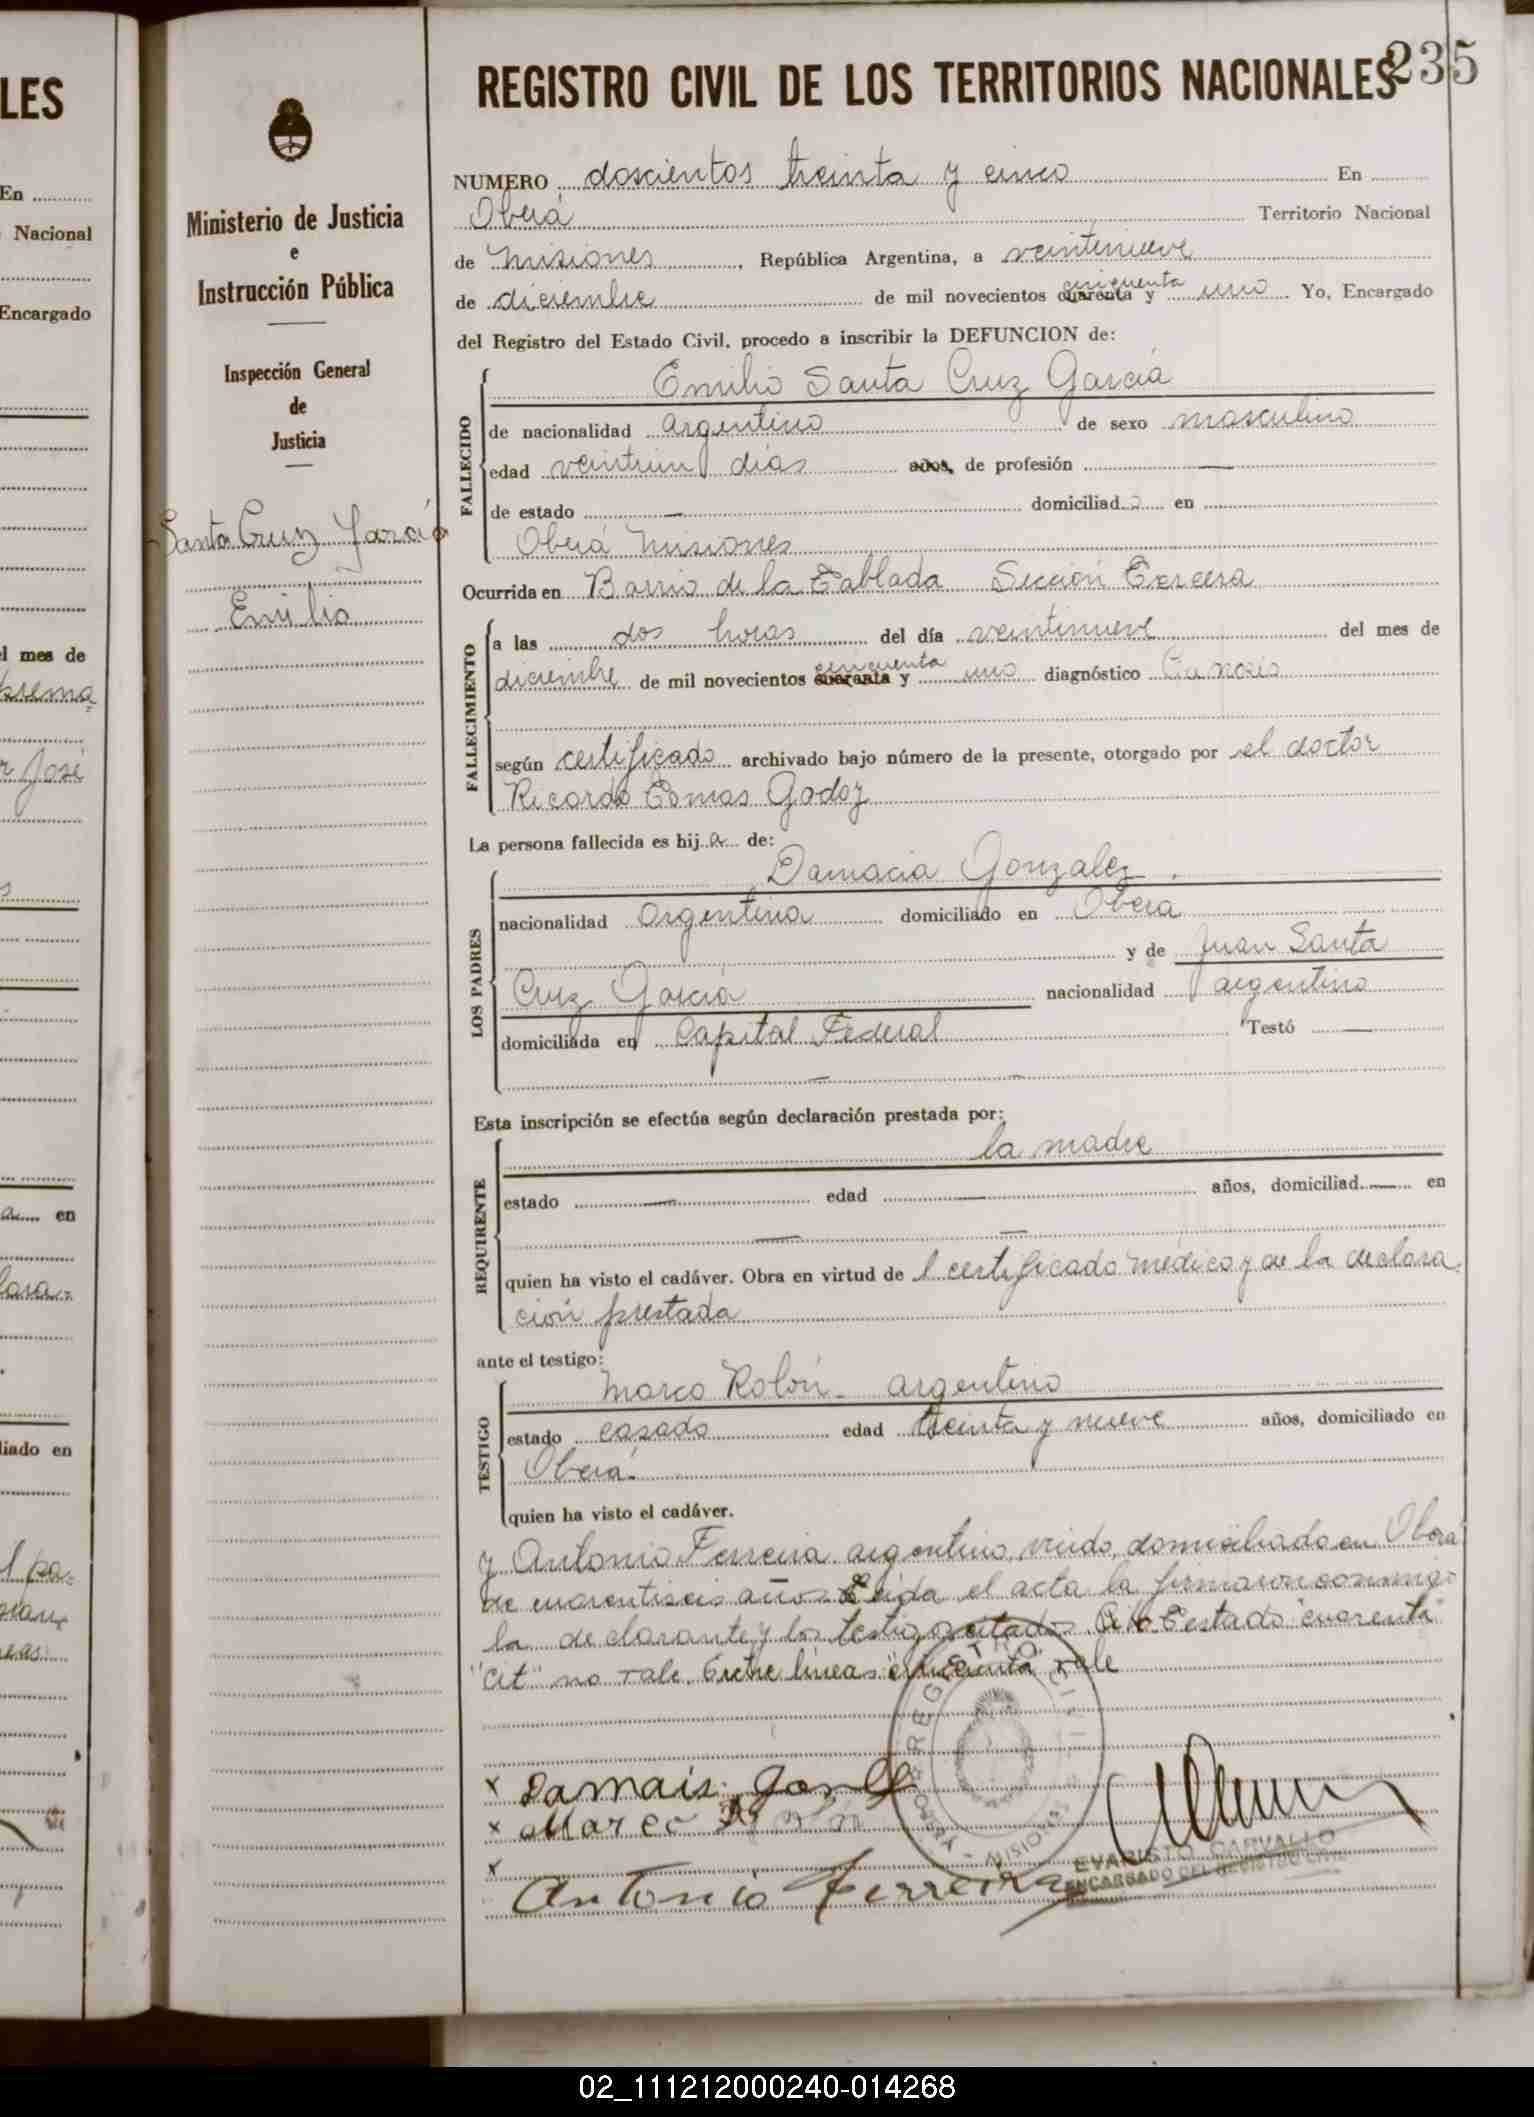 LES
En
Nacional
Encargado
l mes de
r José
en
liado en
235
REGISTRO CIVIL DE LOS TERRITORIOS NACIONALES
Ministerio de Justicia
e
Instrucción Pública
Inspección General
de
Justicia
Santa Cruz García
Emilio
NUMERO doscientos treinta y cinco En
Oberá Territorio Nacional
de Misiones, República Argentina, a veintinueve
de diciembre de mil novecientos cuarenta cincuenta y uno Yo, Encargado
del Registro del Estado Civil, procedo a inscribir la DEFUNCION de:
FALLECIDO
Emilio Santa Cruz García
de nacionalidad argentino de sexo masculino
edad veintiun días años, de profesión —
de estado — domiciliado en
Oberá Misiones
Ocurrida en Barrio de la Tablada Sección Tercera
FALLECIMIENTO
a las dos horas del día veintinueve del mes de
diciembre de mil novecientos cuarenta cincuenta y uno diagnóstico
según certificado archivado bajo número de la presente, otorgado por el doctor
Ricardo Tomas Godoy
La persona fallecida es hija de:
LOS PADRES
Damacia Gonzalez.
nacionalidad argentina domiciliado en Oberá
y de Juan Santa
Cruz García nacionalidad argentino
domiciliada en Capital Federal Testó —
Esta inscripción se efectúa según declaración prestada por:
REQUIRENTE
la madre
estado — edad — años, domiciliad — en
— —
quien ha visto el cadáver. Obra en virtud de l certificado médico y de la declara
ción prestada
ante el testigo:
TESTIGO
Marco Rolón - argentino
estado casado edad treinta y nueve años, domiciliado en
Oberá.
quien ha visto el cadáver.
y Antonio Ferreira argentino, viudo, domiciliado en Oberá
de cuarentiseis años Leida el acta la firmaron conmigo
la declarante y los testigos citados Testado "cuarenta"
"cit" no vale. Entre líneas "cincuenta" vale
x Damasia Gonz
x Marco
x
Antonio Ferreira
REGISTRO CIVIL
OBERA - MISIONES
EVARISTO CARVALLO
ENCARGADO DEL REGISTRO CIVIL
02_111212000240-014268